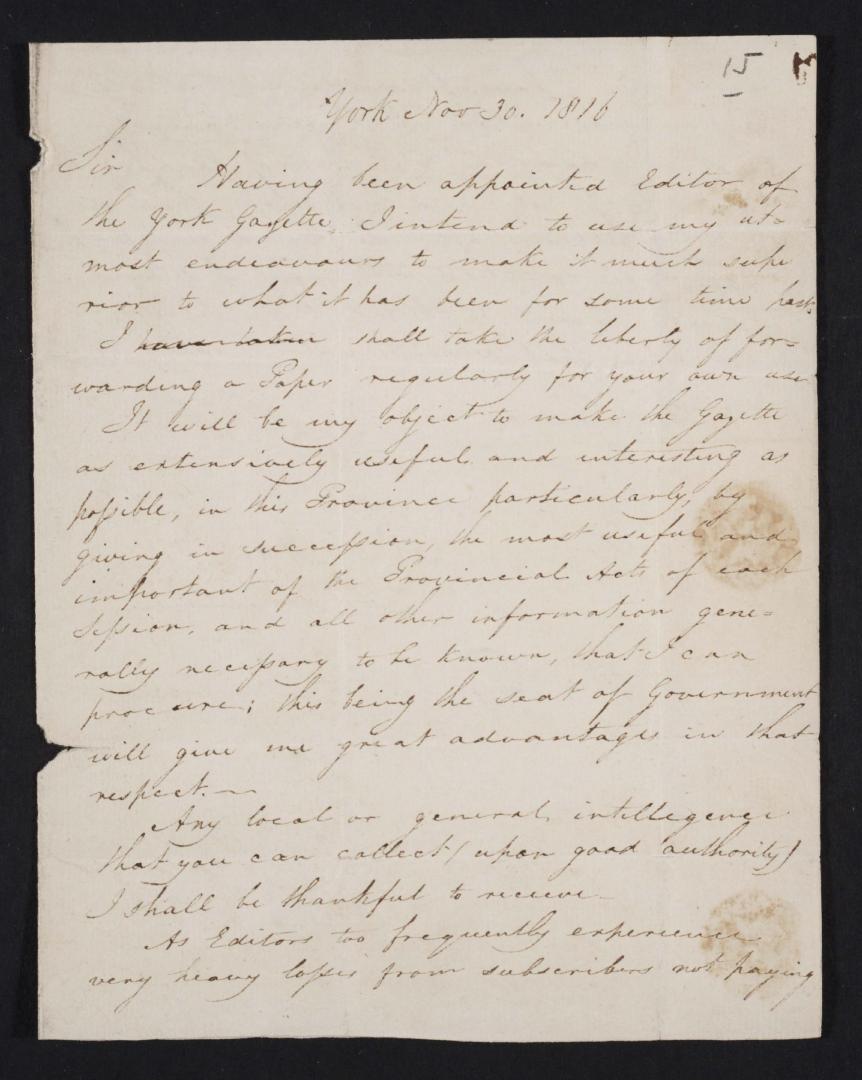 15
York Nov 30. 1816
Sir Having been appointed Editor of
the York Gazette, I intend to use my ut=
most endeavours to make it much supe
rior to what it has been for some time past.
I shall take the liberty of for=
warding a Paper regularly for your own use
It will be my object to make the Gazette
as extensively useful and interesting as
possible, in this Province particularly, by
giving in succession, the most useful and
important of the Provincial Acts of each
Session, and all other information gene=
rally necessary to be known, that I can
procure; this being the seat of Government
will give me great advantages in that
respect.—
Any local or general intelligence
that you can collect (upon good authority)
I shall be thankful to receive—
As Editors too frequently experience
very heavy losses from subscribers not paying